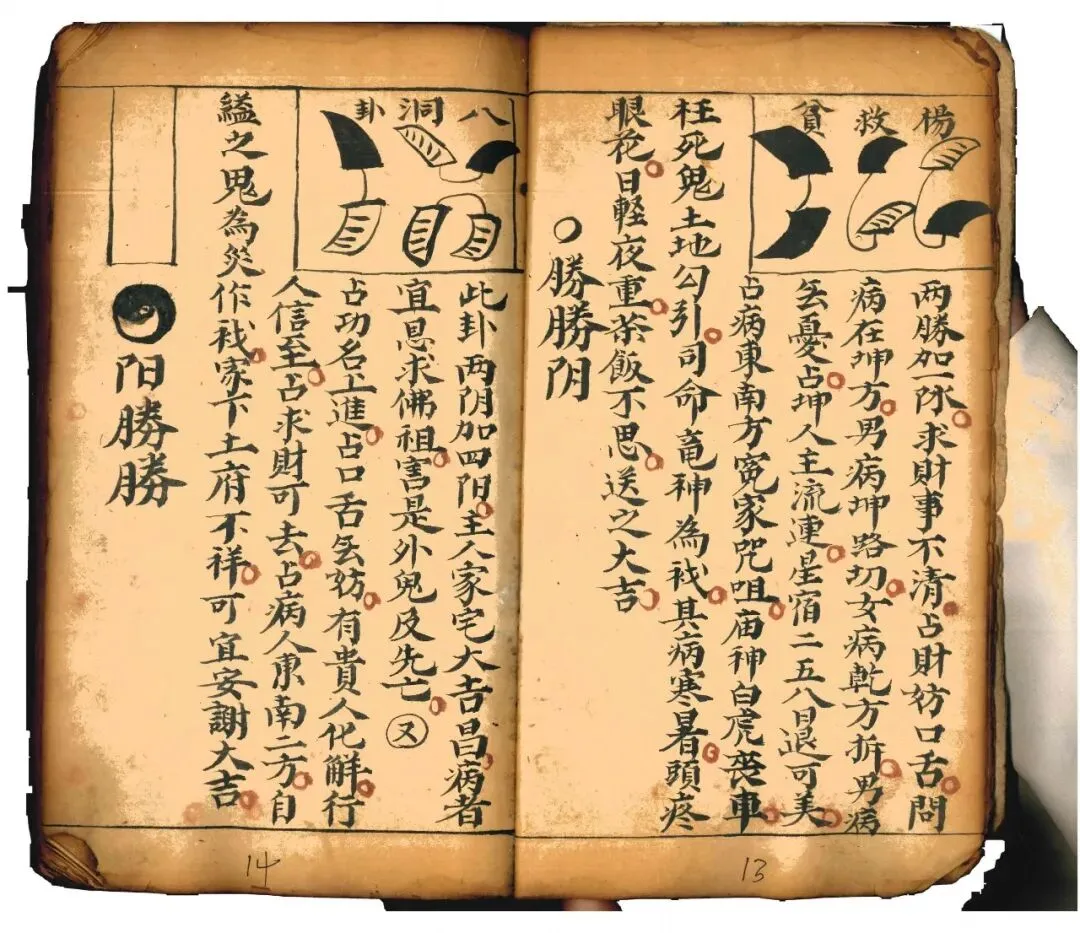 楊救貧
两勝加一阦求財事不清占財妨口舌問
病在坤方男病坤路切女病乾方拆男病
㒵憂占坤人主流連星宿二五八日退可美
占病東南方冤家咒咀庙神白虎丧車
枉死鬼土地勾引司命竜神為祅其病寒暑頭疼
眼花日軽夜重茶飯不思送之大吉
○勝勝阴
13
八洞卦
此卦两阴加四阳主人家宅大吉昌病者
宜恳求佛祖害是外鬼及先亡又
占功名上進占口舌㒵妨有貴人化解行
人信至占求財可去占病人東南二方自
縊之鬼為災作祅家下土府不祥可宜安謝大吉
阳勝勝
14